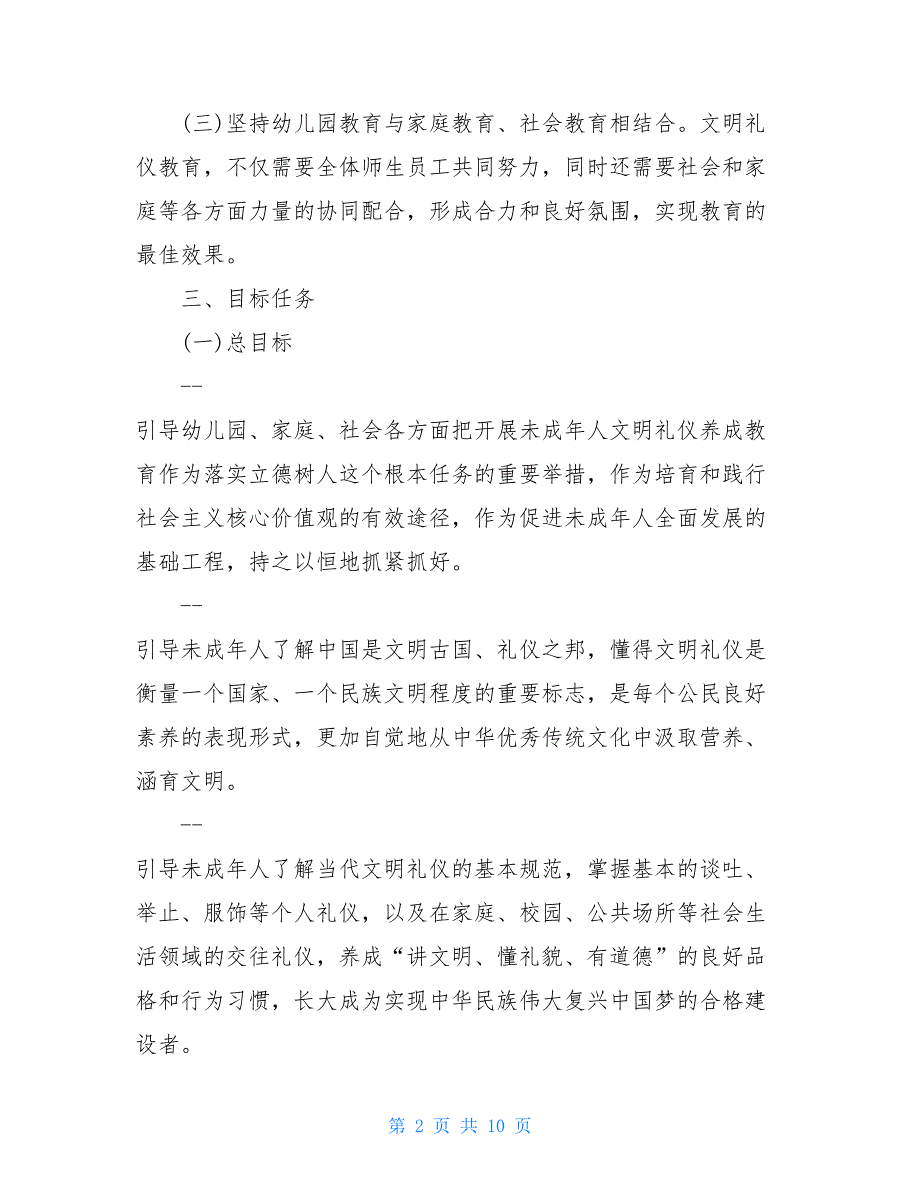 (三)坚持幼儿园教育与家庭教育、社会教育相结合。文明礼
仪教育，不仅需要全体师生员工共同努力，同时还需要社会和家
庭等各方面力量的协同配合，形成合力和良好氛围，实现教育的
最佳效果。
三、目标任务
(一)总目标
--
引导幼儿园、家庭、社会各方面把开展未成年人文明礼仪养成教
育作为落实立德树人这个根本任务的重要举措，作为培育和践行
社会主义核心价值观的有效途径，作为促进未成年人全面发展的
基础工程，持之以恒地抓紧抓好。
--
引导未成年人了解中国是文明古国、礼仪之邦，懂得文明礼仪是
衡量一个国家、一个民族文明程度的重要标志，是每个公民良好
素养的表现形式，更加自觉地从中华优秀传统文化中汲取营养、
涵育文明。
--
引导未成年人了解当代文明礼仪的基本规范，掌握基本的谈吐、
举止、服饰等个人礼仪，以及在家庭、校园、公共场所等社会生
活领域的交往礼仪，养成“讲文明、懂礼貌、有道德”的良好品
格和行为习惯，长大成为实现中华民族伟大复兴中国梦的合格建
设者。
第 2 页 共 10 页